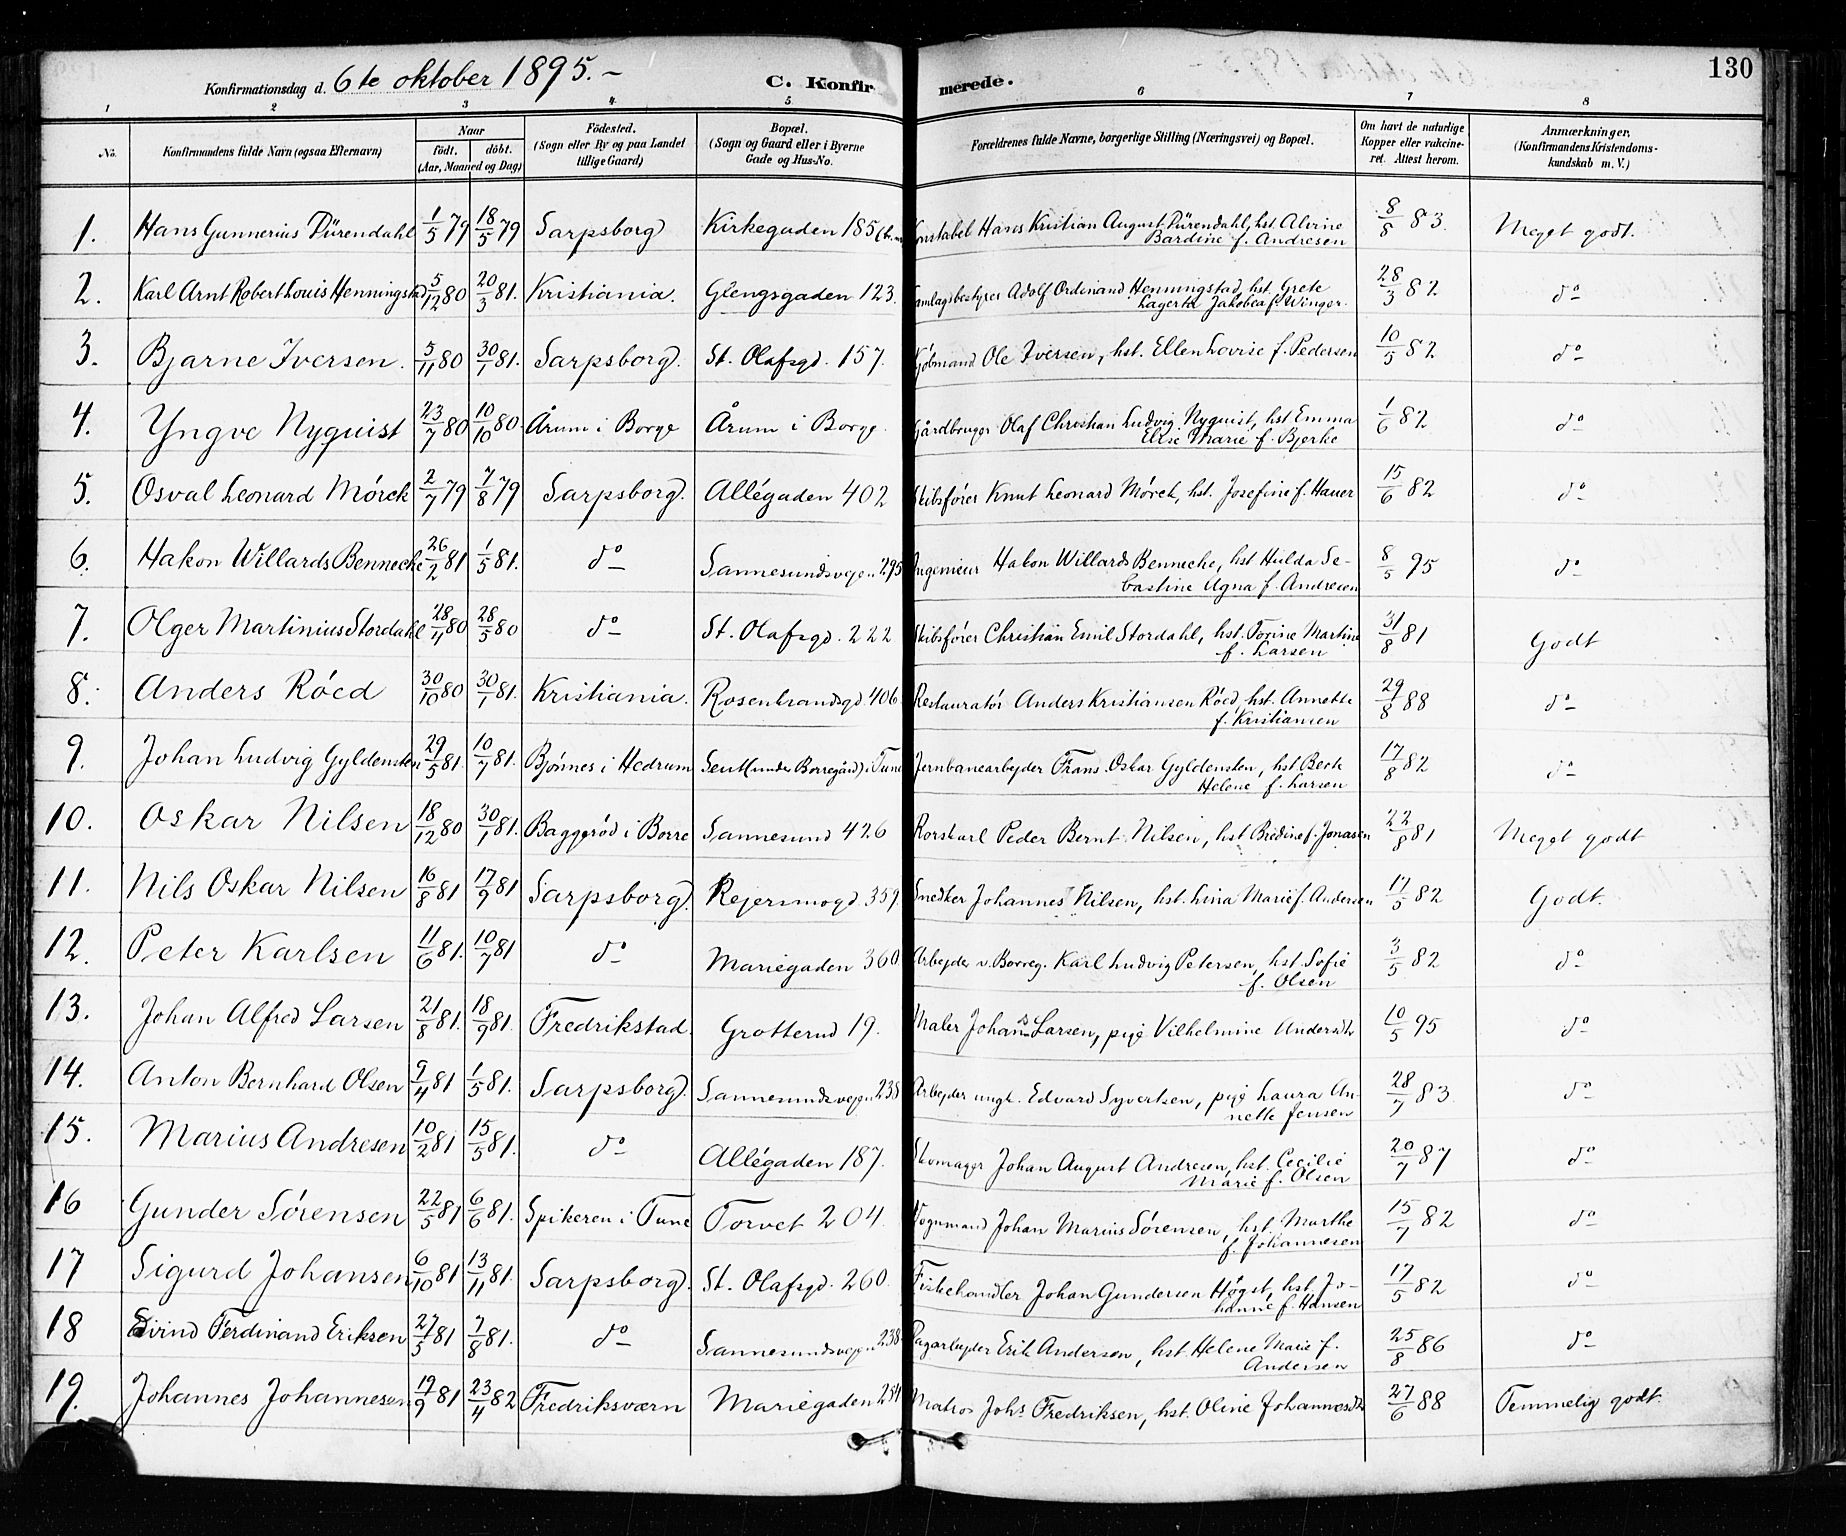 130
Konfirmationsdag d. 6te oktober 1895.–
C. Konfirmerede.
1 2 3 4 5 6 7 8
No. Konfirmandens fulde Navn (ogsaa Efternavn) Naar født. døbt. (Aar, Maaned og Dag) Fødested. (Sogn eller By og paa Landet tillige Gaard) Bopæl. (Sogn og Gaard eller i Byerne Gade og Hus-No. Forældrenes fulde Navne, borgerlige Stilling (Næringsvei) og Bopæl. Om havt de naturlige Kopper eller vakcineret. Attest herom. Anmærkninger. (Konfirmandens Kristendomskundskab m. V.)
1. Hans Gunnerius Dürendahl 1/5 79 18/5 79 Sarpsborg Kirkegaden 185 Konstabel Hans Kristian August Dürendahl, hst. Alvine 8/8 83. Meget godt.
Bardine f. Andresen
2. Karl Arnt Robert Louis Henningstad 5/12 80 20/3 81. Kristiania. Glengsgaden 123. Samlagsbestyrer Adolf Ordinand Henningstad, hst. Grete 28/3 82 do
Lagerta Jakobea f. Winger.
3. Bjarne Iversen. 5/11 80 30/1 81. Sarpsborg. St. Olafsgd. 157. Kjøbmand Ole Iversen, hst. Ellen Lovise f. Pedersen 10/5 82 do
4. Yngve Nyquist 23/7 80 10/10 80. Årum i Borge Årum i Borge. Gårdbruger Olaf Christian Ludvig Nyquist, hst. Emma 1/6 82 do
Elise Marie f. Bjerke
5. Osval Leonard Mörck 2/7 79 7/8 79 Sarpsborg. Allégaden 402 Skibsfører Knut Leonard Mörck, hst. Josefine f. Hauer 15/6 82 do
6. Hakon Willards Bennecke 26/2 81 1/5 81. do Sannesundsvejen 295 Ingenieur Hakon Willards Benneche, hst Hulda Se- 8/5 95 do
bastine Ugna f. Andresen
7. Olger Martinius Stordahl 28/4 80 28/5 80 do St. Olafsgd. 222 Skibsfører Christian Emil Stordahl, hst. Torine Martine 31/8 81 Godt
f. Larsen
8. Anders Röed 30/10 80 30/1 81. Kristiania. Rosenkrandsgd. 406. Restauratör Anders Kristiansen Röed, hst. Annette 29/8 88 do
f. Kristiansen
9. Johan Ludvig Gyldensten 29/5 81. 10/7 81. Bjønnes i Hedrum (under Borregård) i Tune Jernbanearbejder Frans Oskar Gyldensten, hst. Berte 17/8 82 do
Helene f. Larsen
10. Oskar Nilsen 18/12 80 30/1 81. Baggeröd i Borre Sannesund 426 Rorskarl Peder Bernt Nilsen, hst. Bredine f. Jonasen 22/8 81 Meget godt
11. Nils Oskar Nilsen 16/8 81 17/9 81 Sarpsborg. Rejersmogd. 359. Snedker Johannes Nilsen, hst. Lina Marie f. Andersen 17/5 82 Godt.
12. Peter Karlsen 11/6 81. 10/7 81 do Mariegaden 360 Arbejder v. Borreg. Karl Ludvig Petersen, hst. Sofie 3/5 82 do
f. Olsen
13. Johan Alfred Larsen 21/8 81. 18/9 81. Fredrikstad. Grotterud 19. Maler Johan Larsen, pige Vilhelmine Andersdtr 10/5 95 do
14. Anton Bernhard Olsen 9/4 81 1/5 81. Sarpsborg. Sannesundsvejen 238 Arbejder ungk. Edvard Syvertsen, pige Laura An- 28/7 83. do
nette Jensen
15. Marius Andresen 10/2 81 15/5 81. do Allégaden 187. Skomager Johan August Andresen, hst. Cecilie 20/7 87 do
Marie f. Olsen
16 Gunder Sörensen 22/5 81 6/6 81. Spikeren i Tune Torvet 204. Vognmand Johan Marius Sörensen, hst. Marthe 15/7 82 do
f. Johannesen
17 Sigurd Johansen 6/10 81 13/11 81. Sarpsborg. St. Olafsgd. 260. Fiskehandler Johan Gundersen Högst, hst. Jo- 17/5 82 do
hanne f. Hansen
18 Eivind Ferdinand Eriksen 27/5 81 7/8 81. do Sannesundsvejen 238 Erik Andersen, hst. Helene Marie f. 25/8 86 do
Andersen
19. Johannes Johannesen 19/9 81 23/4 82 Fredriksværn Mariegaden 254 Matros Johs Fredriksen, hst. Oline Johannesdtr 27/6 88 Temmelig godt.